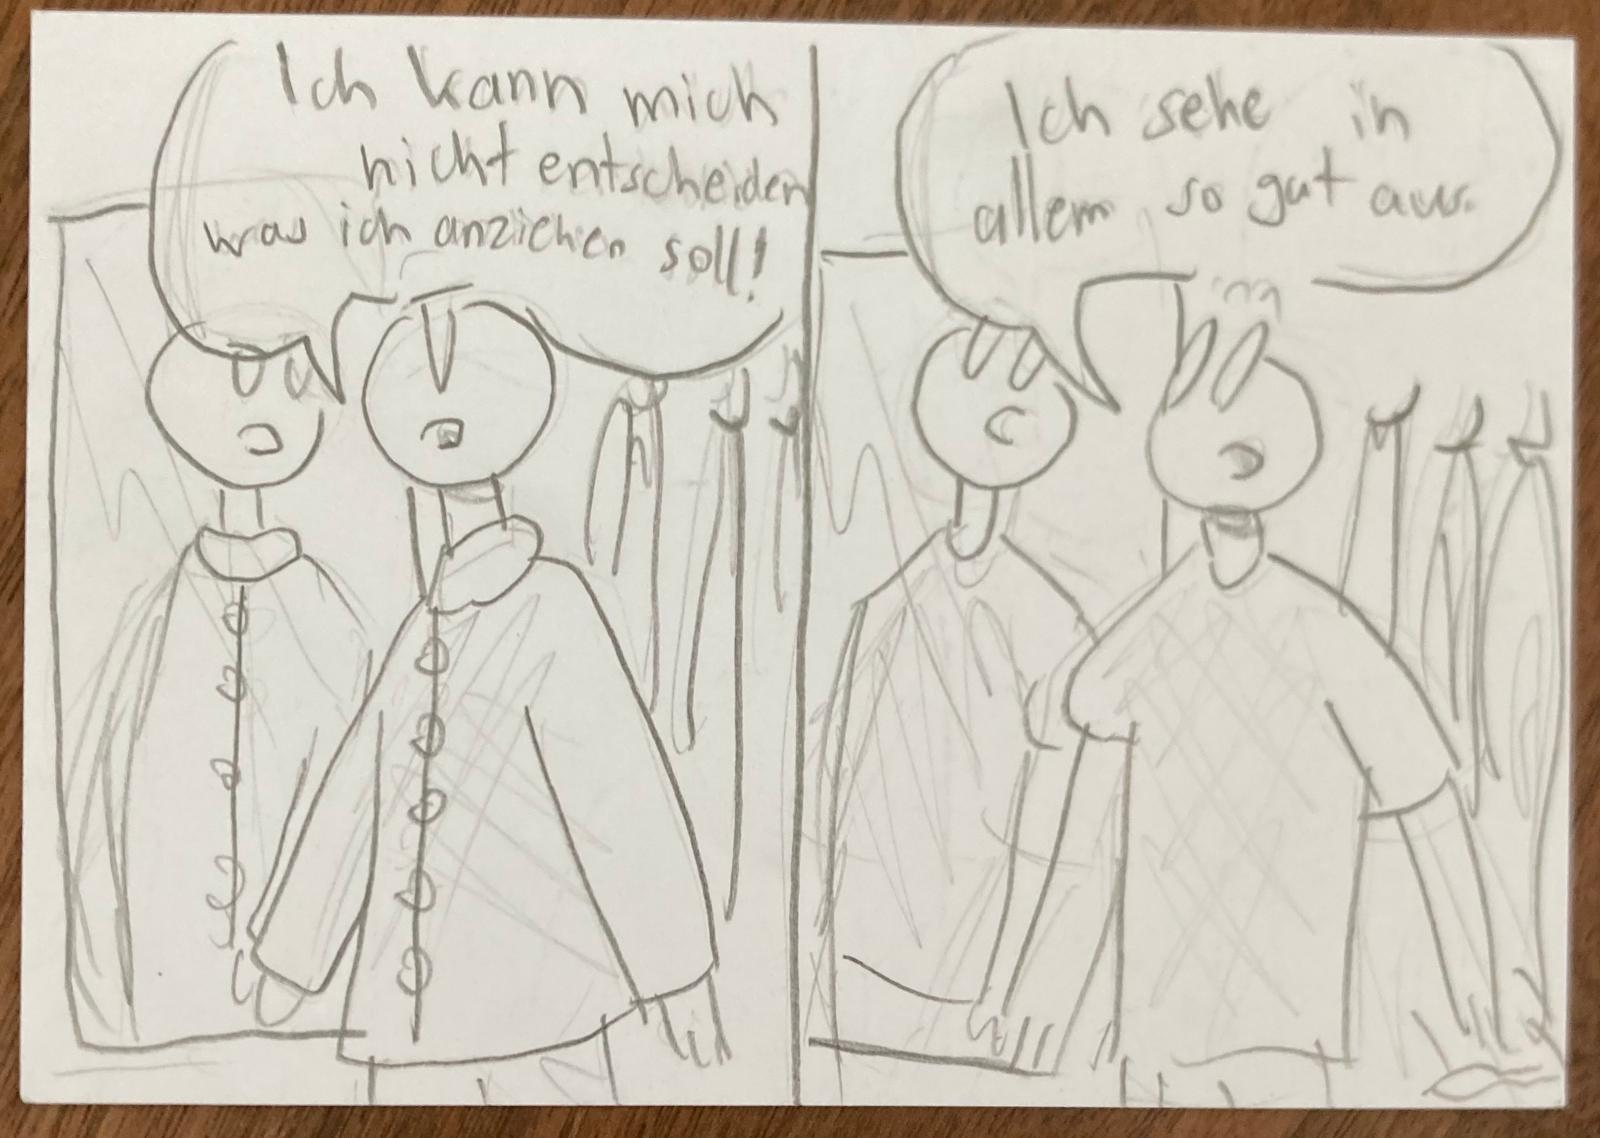 Ich kann mich
nicht entscheiden
was ich anziehen soll!
Ich sehe in
allem so gut aus.